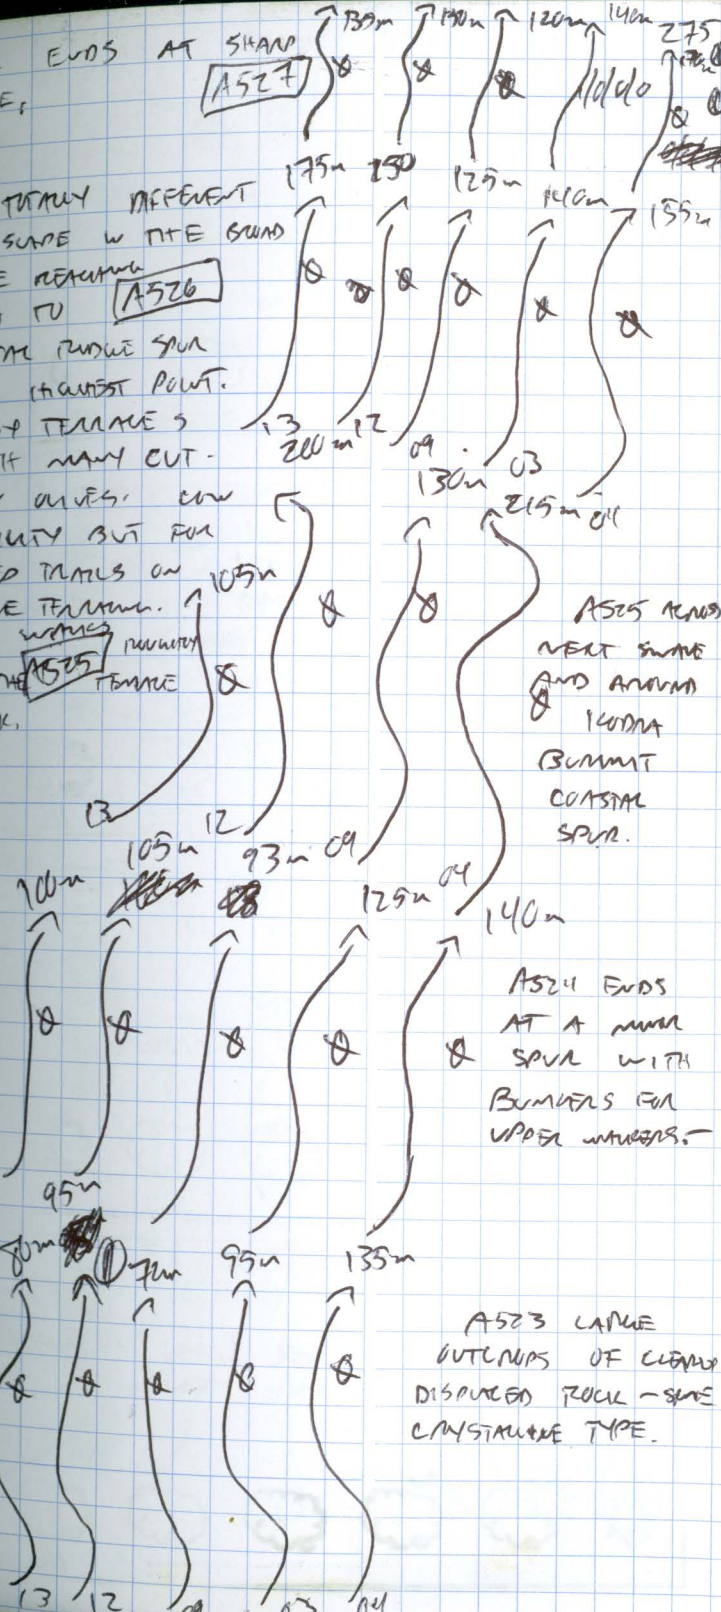 ENDS AT SHARP
A527
E,
139m 130m 120m 140m 275
175m 250 125m 140m 155m
TOTALLY DIFFERENT
SCAPE W THE BROAD
E REACHING
TO A526
RIDGE SPUR
HIGHEST POINT.
TERRACES
MANY CUT.
OLIVES. LOW
BUT FOR
TRAILS ON
E TERRACING.
13 200m 12 09 130m 03 215m 04
105m
A525
TERRACE
K.
A525 ACROSS
NEXT SWALE
AND AROUND
KODRA
SUMMIT
COASTAL
SPUR.
13 12
105m 93m 09 125m 04
100m 140m
A524 ENDS
AT A MINOR
SPUR WITH
BUNKERS FOR
UPPER WALKERS.-
95m
80m 72m 95m 135m
A523 LARGE
OUTCROPS OF CLEARLY
DISPLACED ROCK - SAME
CRYSTALLINE TYPE.
13 12 09 03 04